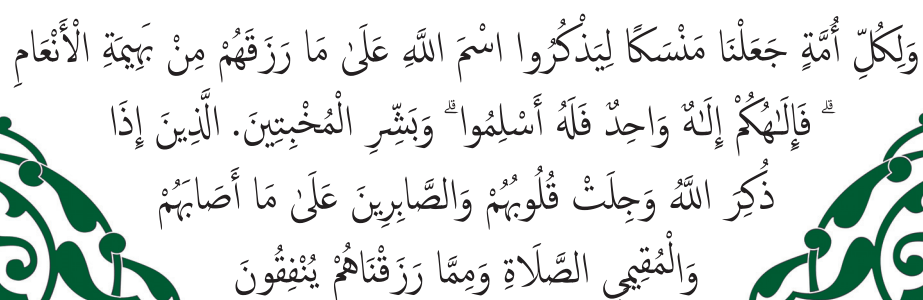 وَلِكُلِّ أُمَّةٍ جَعَلْنَا مَنْسَكًا لِيَذْكُرُوا اسْمَ اللَّهِ عَلَىٰ مَا رَزَقَهُمْ مِنْ بَهِيمَةِ الْأَنْعَامِ
ۗ فَإِلَـٰهُكُمْ إِلَـٰهٌ وَاحِدٌ فَلَهُ أَسْلِمُوا ۗ وَبَشِّرِ الْمُخْبِتِينَ. الَّذِينَ إِذَا
ذُكِرَ اللَّهُ وَجِلَتْ قُلُوبُهُمْ وَالصَّابِرِينَ عَلَىٰ مَا أَصَابَهُمْ
وَالْمُقِيمِي الصَّلَاةِ وَمِمَّا رَزَقْنَاهُمْ يُنْفِقُونَ